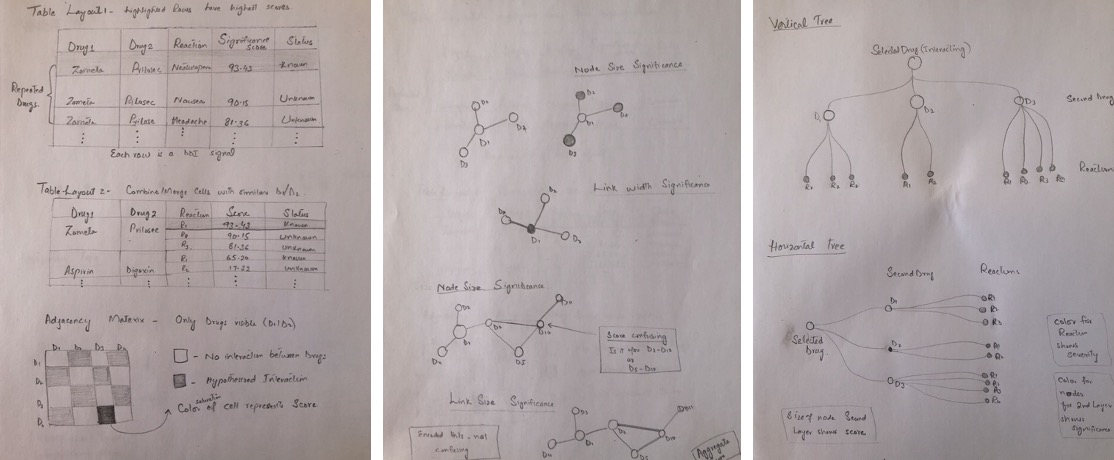 Table Layout 1 - highlighted Rows have highest scores.
Drug1 Drug2 Reaction Significance Score Status
Zometa Prilosec 93.43 Known
Repeated Drugs.
Zometa Prilosec Nausea 90.15 Unknown
Zometa Prilosec Headache 81.36 Unknown
Each row is a DDI signal
Table Layout 2 - Combine/Merge Cells with similar D1/D2
Drug1 Drug2 Reaction Score Status
Zometa Prilosec R1 93-43 Known
90-15 Unknown
R3 81-36 Unknown
65-20 Known
Aspirin Digoxin 17-23 Unknown
Adjacency Matrix - Only Drugs visible (D1/D2)
D1 D2 D3
D1
- No interaction between Drugs
- Hypothesized Interaction
saturation
Color of cell represents Score
Node Size Significance
D1
D3
D1
D3
Link Width Significance
D2
D1
D3
Node Size Significance
D1
D5
D10
Score confusing
Is it for D2-D10
or
D5-D10
Link Size Significance
D1
D10
D5
Encoded this - not
confusing
Aggregate
Vertical Tree
Selected Drug (Interacting)
D1 D2 D3
Second Drug
Reactions
Horizontal Tree
Second Drug Reactions
D1
R1
R2
R3
Selected
Drug.
D2
D3
R1
Color for
Reaction
shows
severity
Color for
nodes
for 2nd Layer
shows
significance
Size of node Second
Layer shows score